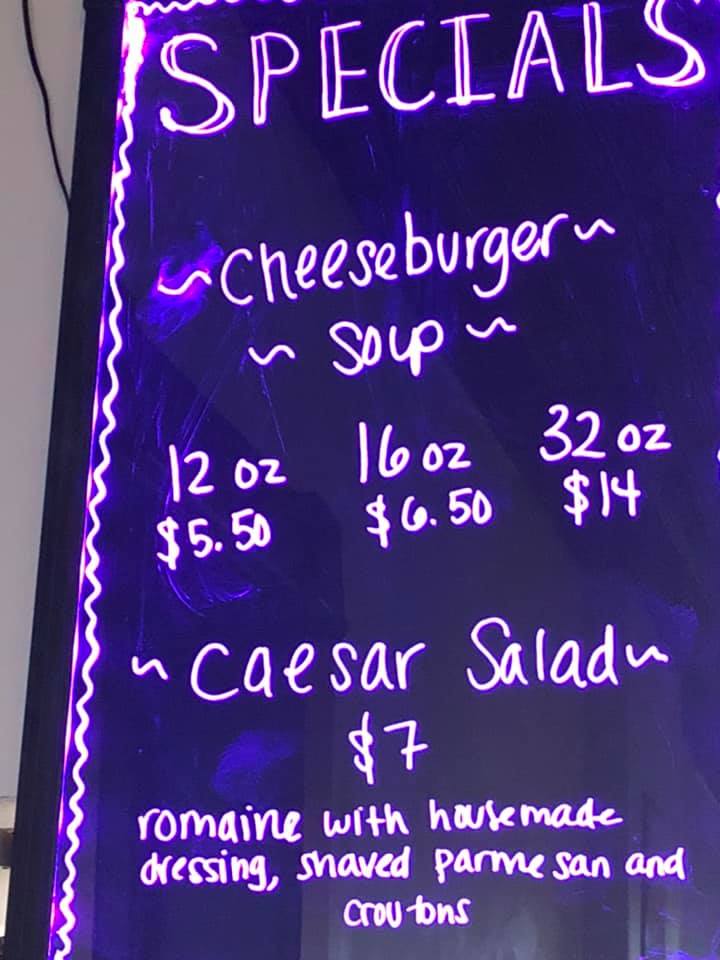 SPECIALS
~Cheeseburger~
~ Soup ~
12 oz 16 oz 32 oz
$5.50 $6.50 $14
~ Caesar Salad~
$7
romaine with housemade
dressing, shaved parmesan and
croutons